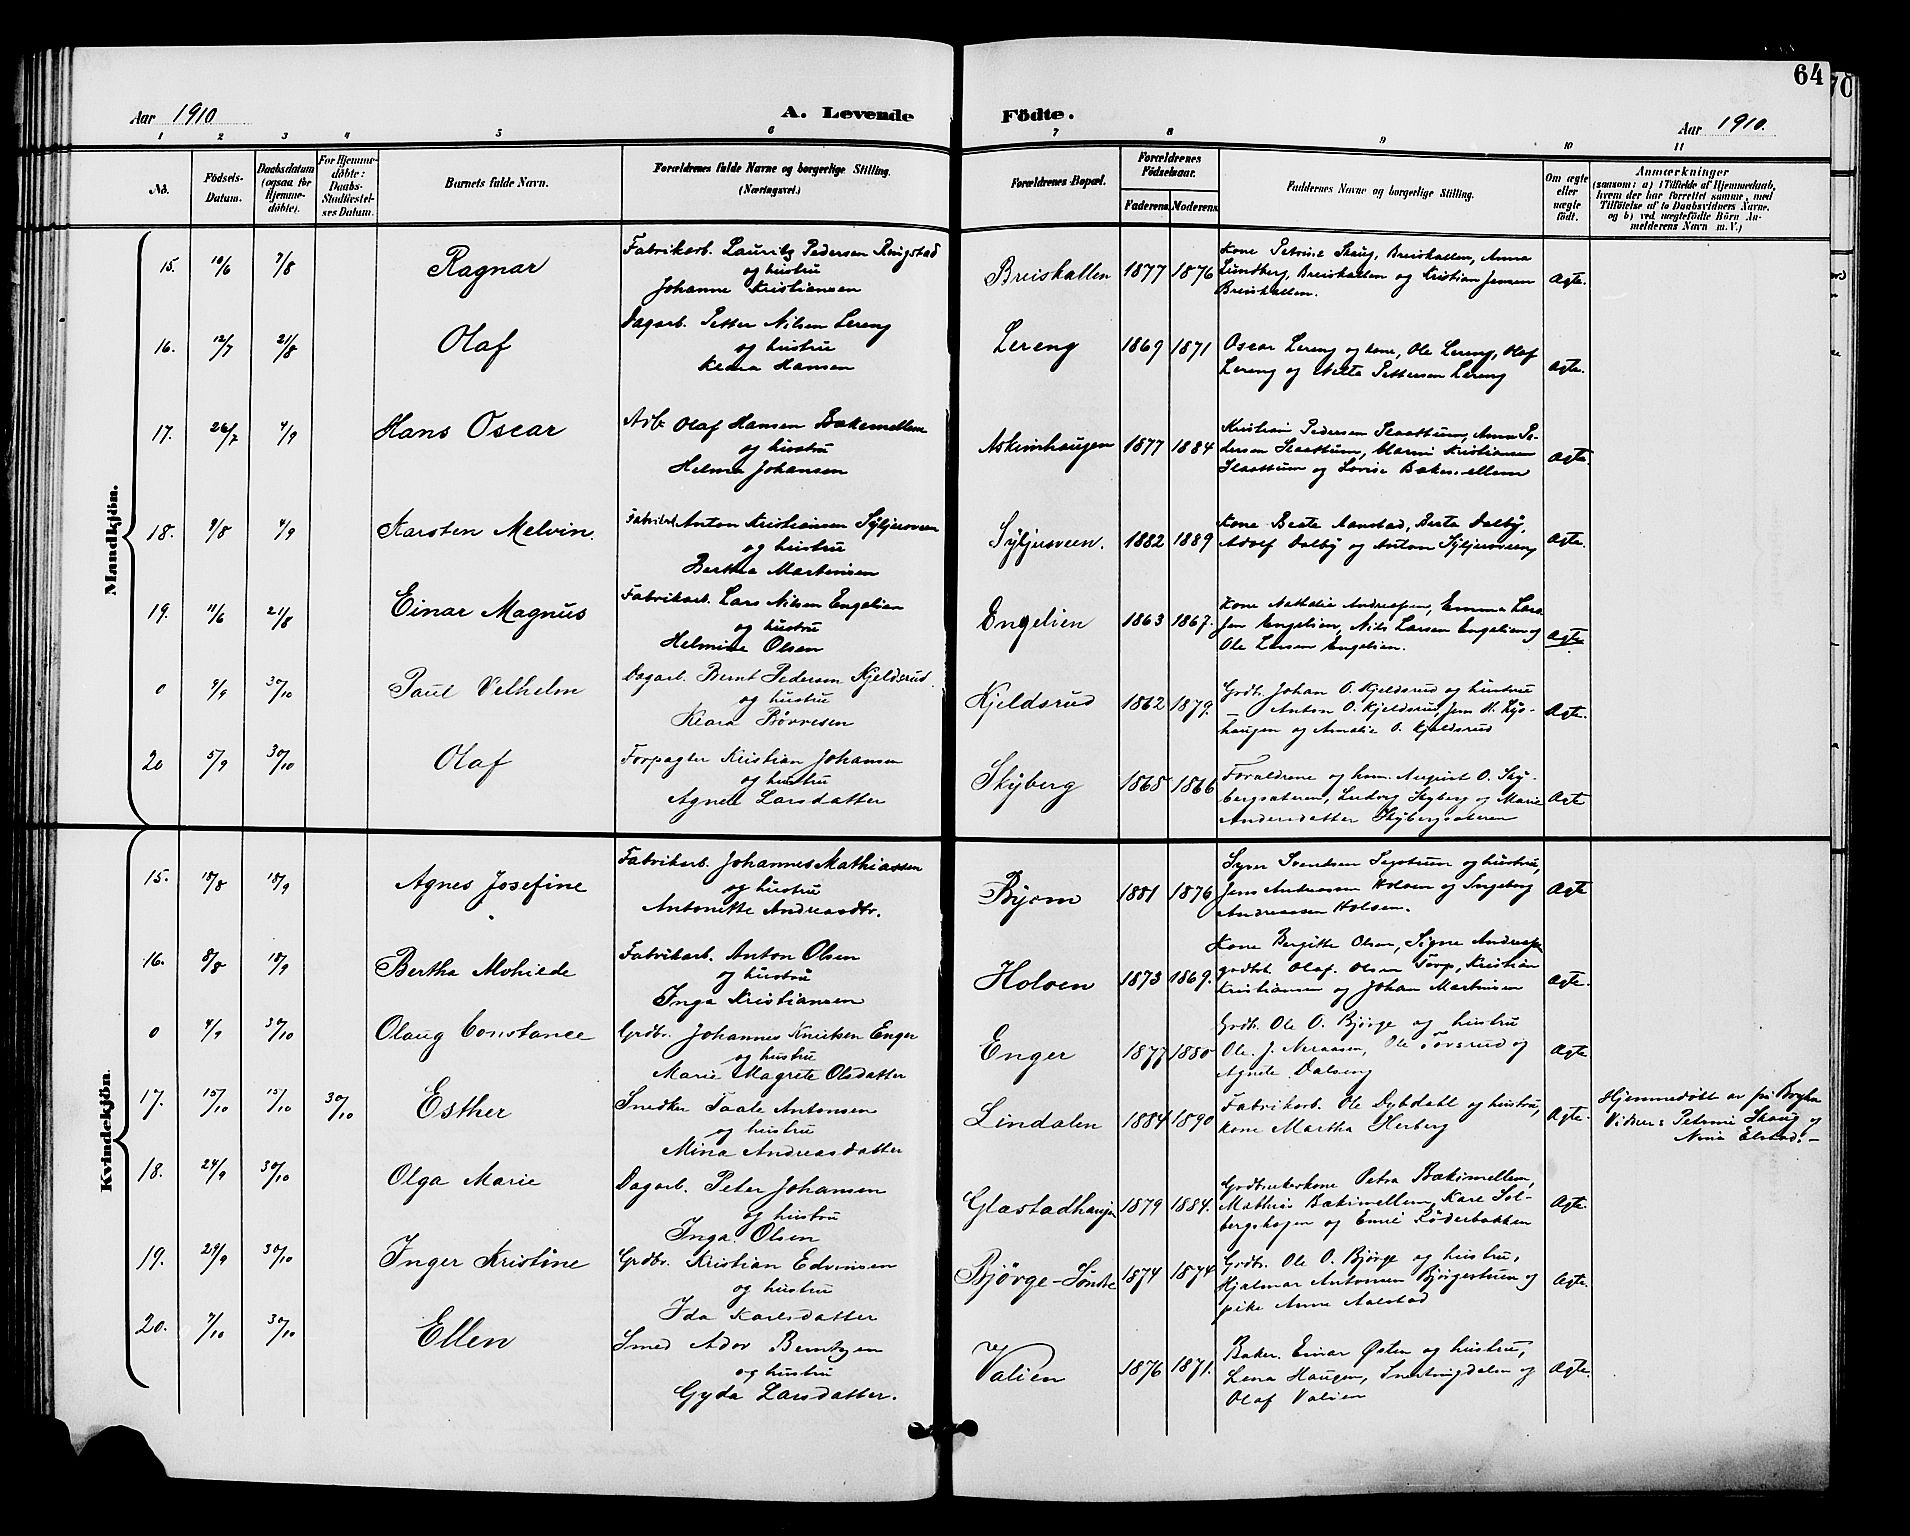 64
70
Aar 1910.
A. Levende Födte.
Aar 1910.
1 2 3 4 5 6 7 8 9 10 11
No.
Födsels-Datum.
Daabsdatum (ogsaa for Hjemme-döbte).
For Hjemme-döbte: Daabs-Stadfæstel-ses Datum.
Barnets fulde Navn.
Forældrenes fulde Navne og borgerlige Stilling. (Næringsvei.)
Forældrenes Bopæl.
Forældrenes Födselsaar.
Faderens. Moderens.
Faddernes Navne og borgerlige Stilling.
Om ægte eller uægte födt.
Anmærkninger
(saasom: a) i Tilfælde af Hjemmedaab, hvem der har forrettet samme, med Tilföielse af to Daabsvidners Navne, og b) ved uægtefödte Börn An-melderens Navn m. V.)
Mandkjön.
15. 10/6 7/8 Ragnar
Fabrikarb. Lauritz Pedersen Ringstad
og hustru
Johanne Kristiansen
Breiskallen 1877 1876
Kone Petrine Skaug, Breiskallen, Anna
Lundberg, Breiskallen og Kristian Jensen
Breiskallen.
Ægte.
16. 12/7 21/8 Olaf
Dagarb. Petter Nilsen Lereng
og hustru
Klara Hansen
Lereng 1869 1871
Oscar Lereng og kone, Ole Lereng, Olaf
Lereng og Pettersen Lereng
Ægte.
17. 26/7 4/9 Hans Oscar
Arb. Olaf Hansen Bakemellem
og hustru
Helma Johansen
Askimhaugen 1877 1884
Kristian Pedersen Slaattum, Anna Pe-
dersen Slaattum, Marni Kristiansen
Slaattum og Lovise Bakemellem
Ægte.
18. 9/8 4/9 Karsten Melvin.
Fabrikarb Anton Kristiansen Syljusveen
og hustru
Bertha Martinsen
Syljusveen. 1882 1889
Kone Beate Aanstad, Berta Dalby,
Adolf Dalby og Anton Syljusveen
Ægte.
19. 11/6 21/8 Einar Magnus
Fabrikarb. Lars Nilsen Engelien
og hustru
Helmine Olsen
Engelien 1863 1867.
Kone Nathalie Andreassen, Emma Lars-
sen Engelien, Nils Larsen Engelien og
Ole Larsen Engelien.
Ægte
0 9/9 30/10 Paul Vilhelm
Dagarb. Bernt Pedersen Kjeldsrud.
og hustru
Klara Börresen
Kjeldsrud 1862 1879.
Grdb. Johan O. Kjeldsrud og hustru
Anton O. Kjeldsrud, Jens H.
haugen og Amalie O. Kjeldsrud
Ægte.
20 5/9 30/10 Olaf
Forpagter Kristian Johansen
og hustru
Agnete Larsdatter
Skyberg 1865 1866
Forældrene og August O. Sky-
bergsæteren, Ludvig Skyberg og Marie
Andersdatter Skybergsæteren
Ægte
Kvindekjön.
15. 18/8 18/9 Agnes Josefine
Fabrikarb. Johannes Mathiassen
og hustru
Antonette Andreasdtr.
Byom 1881 1876
Syver Svendsen og hustru,
Jens Andreassen Holsen og Ingeborg
Andreassen Holsen.
Ægte
16. 8/8 18/9 Bertha Mohilde
Fabrikarb. Anton Olsen
og hustru
Inga Kristiansen
Holoen 1873 1869.
Kone Bergitte Olsen, Signe Andreas
Olaf Olsen Torp, Kristian
Kristiansen og Johan Martinsen
Ægte.
0 4/9 30/10 Olaug Constance
Grdbr. Johannes Knutsen Enger
og hustru
Marie Magrete Olsdatter
Enger 1877 1880
Grdb. Ole O. Bjørge og hustru
Ole J. Neraasen, Ole Torsrud og
Agnete Dalseng
Ægte
17. 15/10 15/10 30/10 Esther
Snedker Taale Antonsen
og hustru
Mina Andreasdatter
Lindalen 1884 1890
Fabrikarb. Ole Dybdahl og hustru,
kone Martha Herberg
Ægte.
Hjemmedöbt av
Vidner: Petrine Skaug og
18. 24/9 30/10 Olga Marie
Dagarb. Peter Johansen
og hustru
Inga Olsen
Glæstadhaugen 1879 1884.
Grdbrukerkone Petra Bækimellem,
Mathias Bækimellem, Kare Sol-
bergshagen og Röderbakken
Ægte.
19. 29/9 30/10 Inger Kristine
Grdbr. Kristian Edvinsen
og hustru
Ida Karlsdatter
Bjørge-Søndre 1874 1874
Grdb. Ole O. Bjørge og hustru,
Hjalmar Antonsen Bjørgestuen og
pike Anna Aalstad
Ægte.
20. 7/10 30/10 Ellen
Smed Adov Berntzen
og hustru
Gyda Larsdatter.
Valien 1876 1871.
Baker Einar Østen og hustru,
Lena Haugen, Snertingdalen og
Olaf Valien
Ægte.